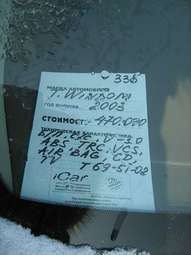 335
МАРКА АВТОМОБИЛЯ
T. WINDOM
ГОД ВЫПУСКА 2003
СТОИМОСТЬ: 470.000
ТЕХНИЧЕСКАЯ ХАРАКТЕРИСТИКА
V-3.0
ABS, TRC, VCS,
AIR BAG, CD,
TV T 69-51-02
iCar